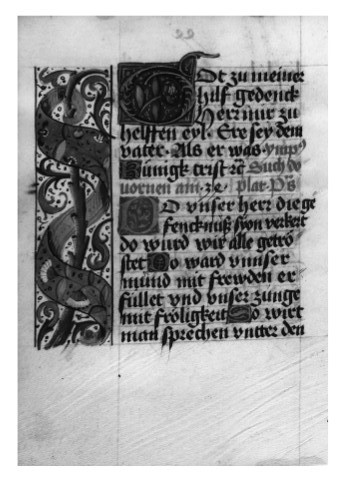 99
Ot zu meiner
hilf gedenck
Herr mir zu
helffen eyl. Ere sey dem
vater. Als er was. ymp9
Kunigk crist rc Such do
uornen ani. ze. plar. Ds
O vnser herr die ge
fencknuß syon verkert
do wurd wir alle getrö
stet Do ward vnnser
mund mit frewden er
füllet vnd vnser zunge
mit fröligkeit So wirt
man sprechen vntter den